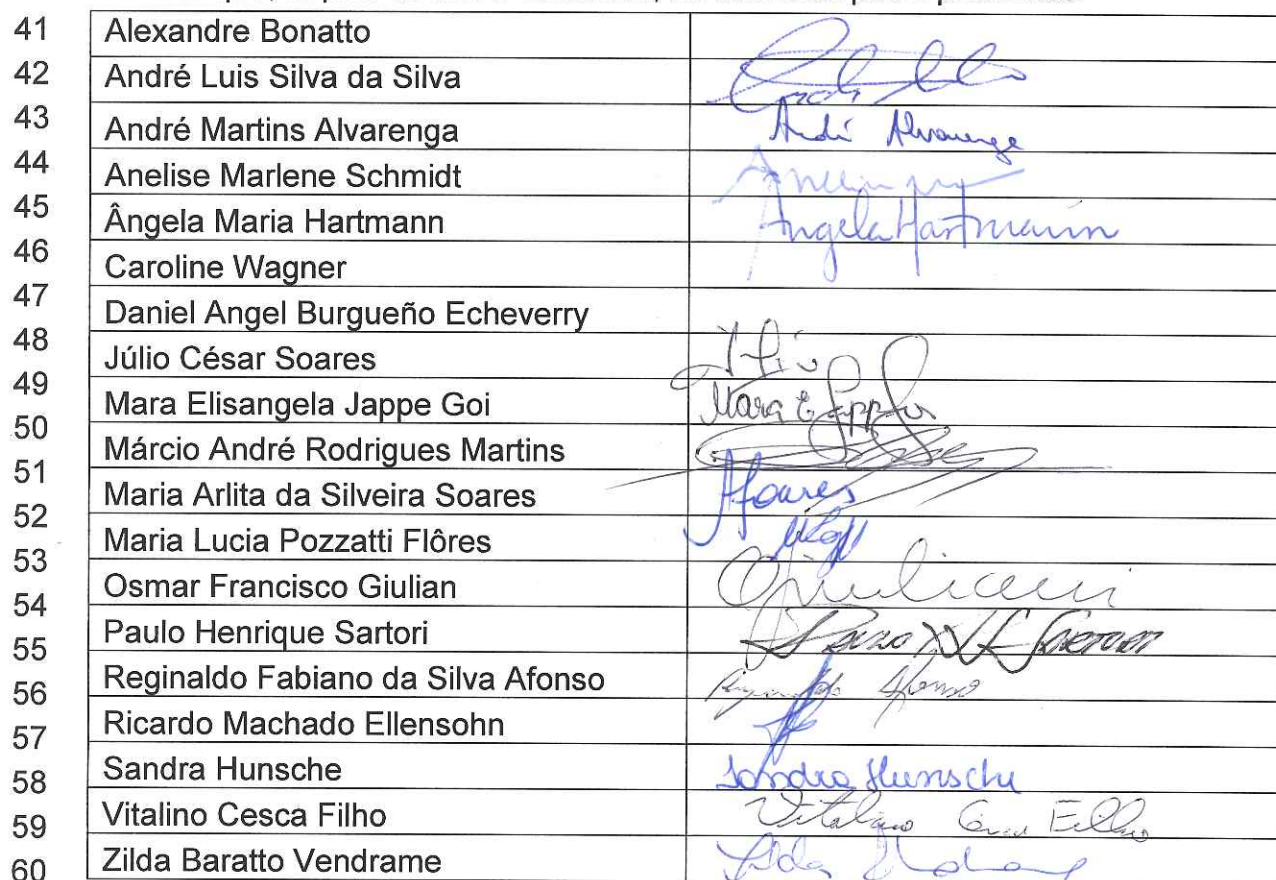 41 Alexandre Bonatto
42 André Luis Silva da Silva
43 André Martins Alvarenga André Alvarenga
44 Anelise Marlene Schmidt
45 Ângela Maria Hartmann Angela Hartmann
46 Caroline Wagner
47 Daniel Angel Burgueño Echeverry
48 Júlio César Soares
49 Mara Elisangela Jappe Goi Mara E Jappe Goi
50 Márcio André Rodrigues Martins
51 Maria Arlita da Silveira Soares ASoares
52 Maria Lucia Pozzatti Flôres
53 Osmar Francisco Giulian OGiuliani
54 Paulo Henrique Sartori
55 Reginaldo Fabiano da Silva Afonso Reginaldo Afonso
56 Ricardo Machado Ellensohn
57 Sandra Hunsche Sandra Hunsche
58 Vitalino Cesca Filho Vitalino Cesca Filho
59 Zilda Baratto Vendrame
60